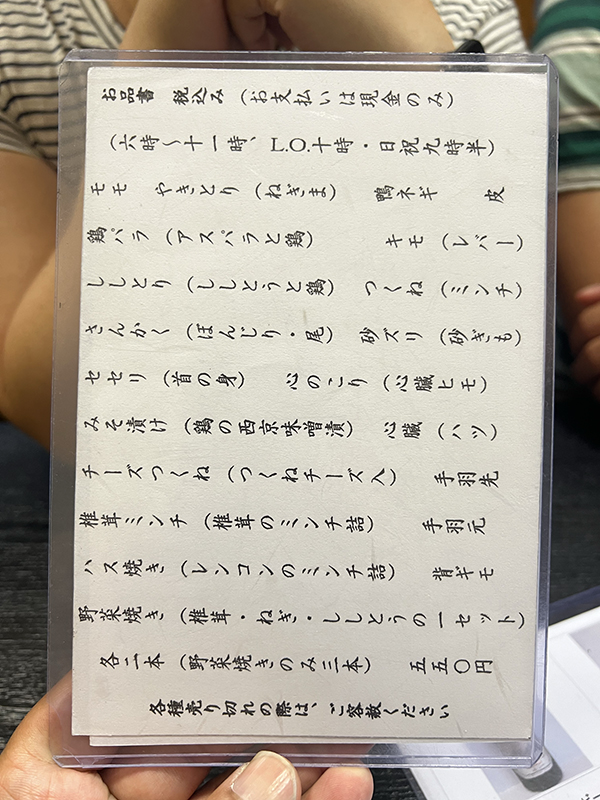 お品書 税込み（お支払いは現金のみ）
（六時～十一時、L.O.十時・日祝九時半）
モモ やきとり（ねぎま） 鴨ネギ 皮
鶏パラ（アスパラと鶏） キモ（レバー）
ししとり（ししとうと鶏） つくね（ミンチ）
さんかく（ぼんじり・尾） 砂ズリ（砂ぎも）
セセリ（首の身） 心のこり（心臓ヒモ）
みそ漬け（鶏の西京味噌漬） 心臓（ハツ）
チーズつくね（つくねチーズ入） 手羽先
椎茸ミンチ（椎茸のミンチ詰） 手羽元
ハス焼き（レンコンのミンチ詰） 背ギモ
野菜焼き（椎茸・ねぎ・ししとうの一セット）
各二本（野菜焼きのみ三本） 五五〇円
各種売り切れの際は、ご容赦ください